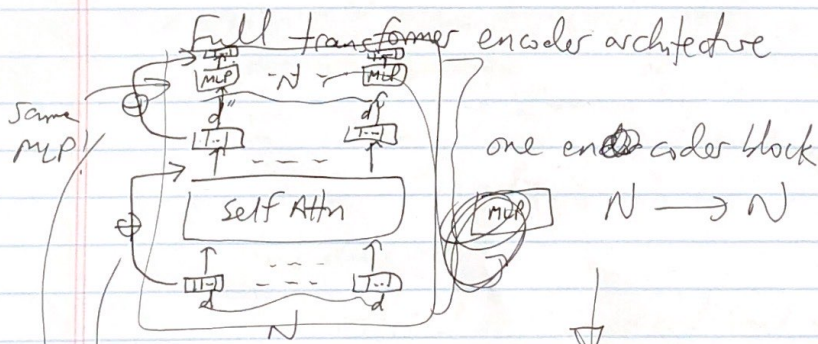 Full transformer encoder architecture
MLP - N - MLP
same
MLP!
d d
one encoder block
Self Attn
MLP N → N
d d
N